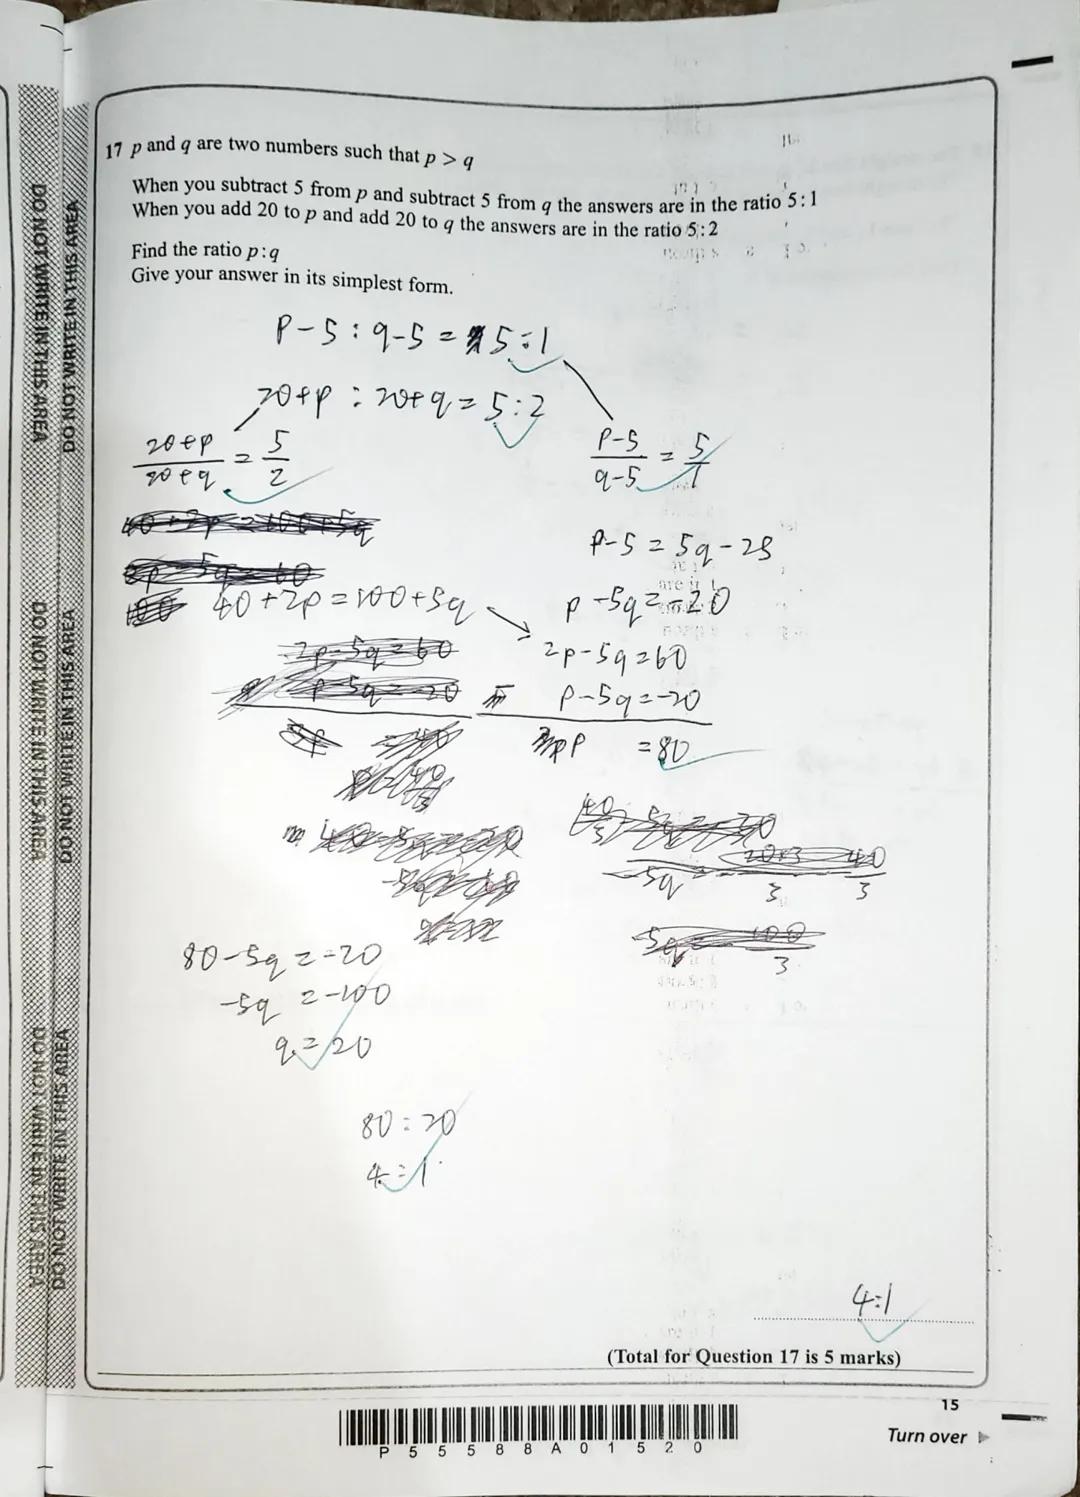 17 p and q are two numbers such that p > q
When you subtract 5 from p and subtract 5 from q the answers are in the ratio 5 : 1
When you add 20 to p and add 20 to q the answers are in the ratio 5 : 2
Find the ratio p : q
Give your answer in its simplest form.
P-5 : q-5 = 5:1
20+p : 20+q = 5:2
20+p / 20+q = 5/2
P-5 / q-5 = 5/1
P-5 = 5q-25
40+2p = 100+5q
p-5q = -20
2p-5q = 60
p-5q = -20
P = 80
80-5q = -20
-5q = -100
q = 20
80 : 20
4 : 1
4:1
(Total for Question 17 is 5 marks)
15
P 5 5 5 8 8 A 0 1 5 2 0
Turn over
DO NOT WRITE IN THIS AREA
DO NOT WRITE IN THIS AREA
DO NOT WRITE IN THIS AREA
DO NOT WRITE IN THIS AREA
DO NOT WRITE IN THIS AREA
DO NOT WRITE IN THIS AREA